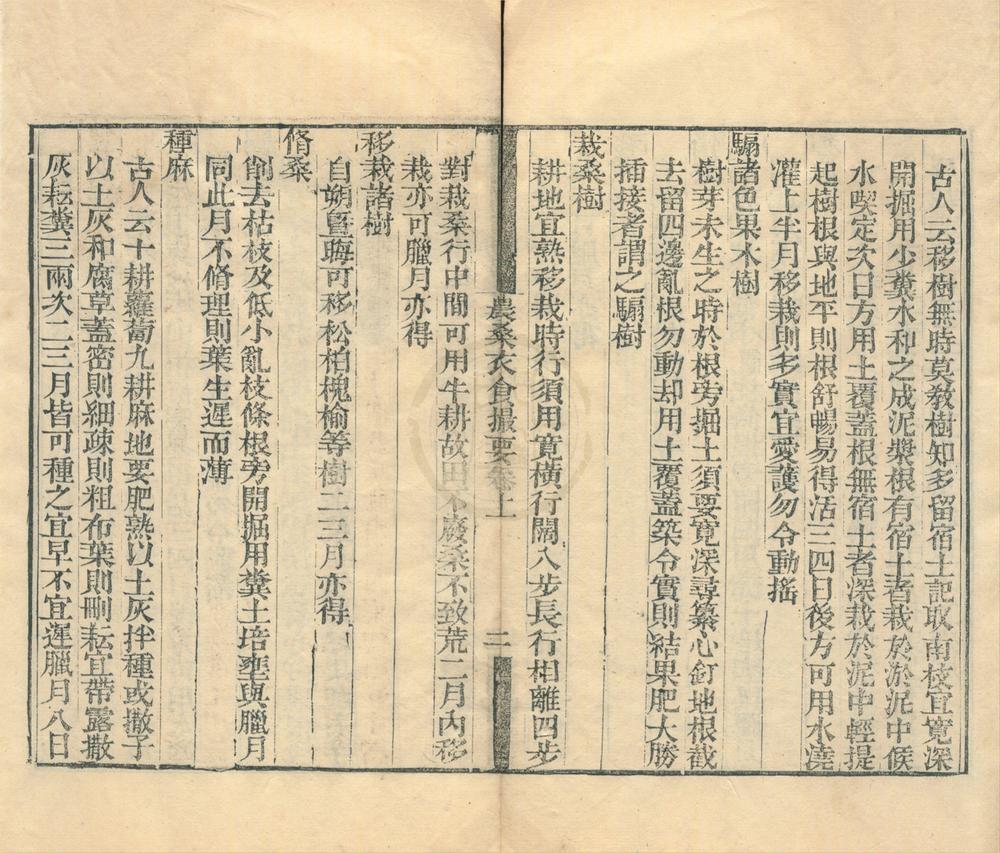 古人云移樹無時莫敎樹知多留宿土記取南枝宜寛深
開掘用少糞水和之成泥漿根有宿土者栽於淤泥中候
水喫定次日方用土覆蓋根無宿土者深栽於泥中輕提
起樹根與地平則根舒暢易得活三四日後方可用水澆
灌上半月移栽則多實宜愛護勿令動揺
騸諸色果木樹
樹芽未生之時於根旁掘土須要寛深尋纂心釘地根截
去留四邊亂根勿動却用土覆蓋築令實則結果肥大勝
插接者謂之騸樹
栽桑樹
耕地宜熟移栽時行須用寛横行闊八步長行相離四步
農桑衣食撮要卷上
二
對栽桑行中間可用牛耕故田不廢桑不致荒二月內移
栽亦可臘月亦得
移栽諸樹
自朔曁晦可移松柏槐榆等樹二三月亦得
脩桑
削去枯枝及低小亂枝條根旁開掘用糞土培壅與臘月
同此月不脩理則葉生遲而薄
種麻
古人云十耕蘿蔔九耕麻地要肥熟以土灰拌種或撒子
以土灰和腐草蓋密則細疎則粗布葉則刪耘宜帶露撒
灰耘糞三兩次二三月皆可種之宜早不宜遲臘月八日